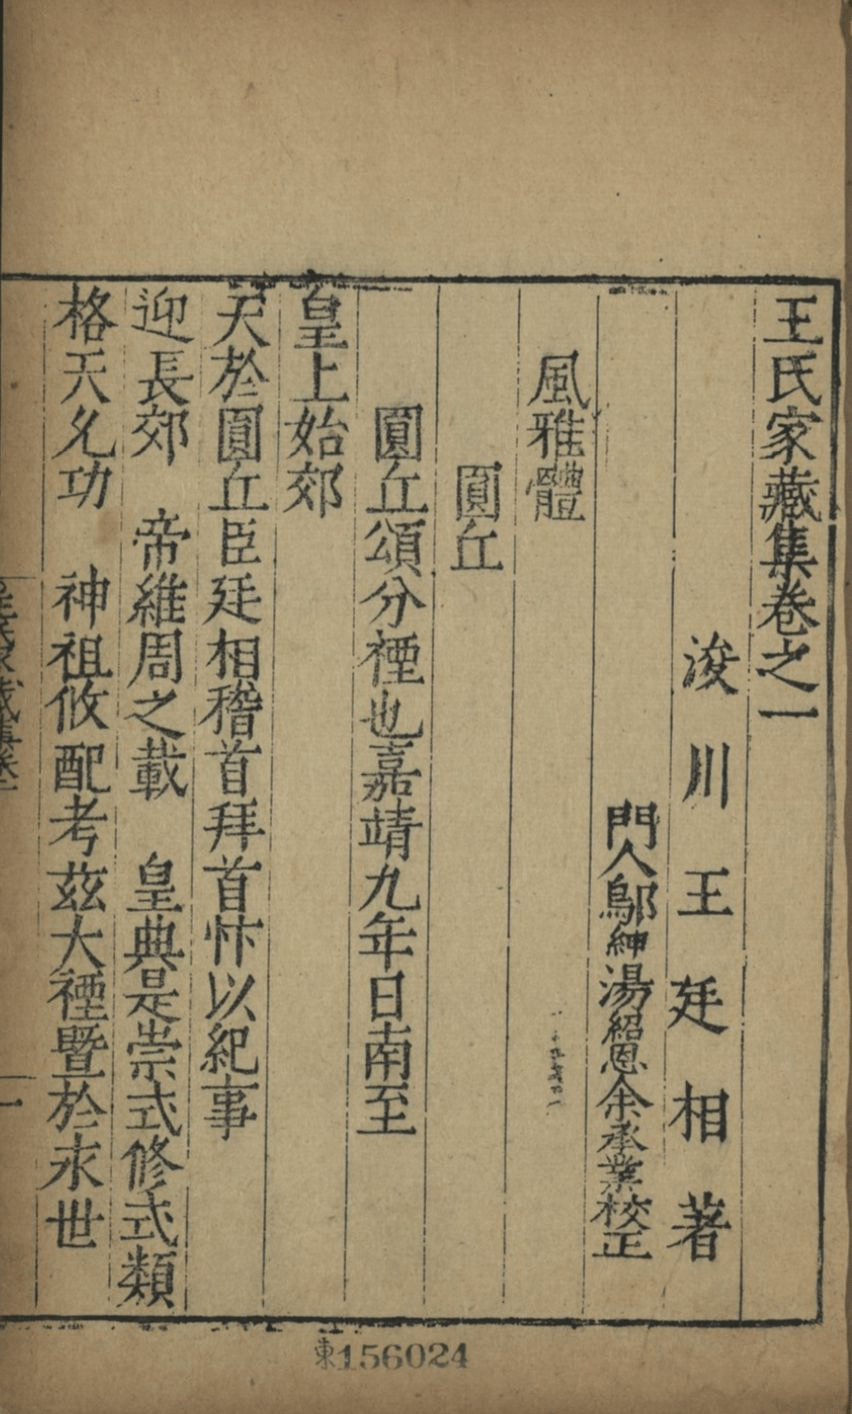 王氏家藏集卷之一
浚川王廷相著
門人鄔紳湯紹恩余承業校正
風雅體
圓丘
圓丘頌分禋也嘉靖九年日南至
皇上始郊
天於圓丘臣廷相稽首拜首忭以紀事
迎長郊　帝維周之載　皇典是崇式修式類
格天　功　神祖攸配考茲大禋曁於永世
王氏家藏集卷一
一
東156024